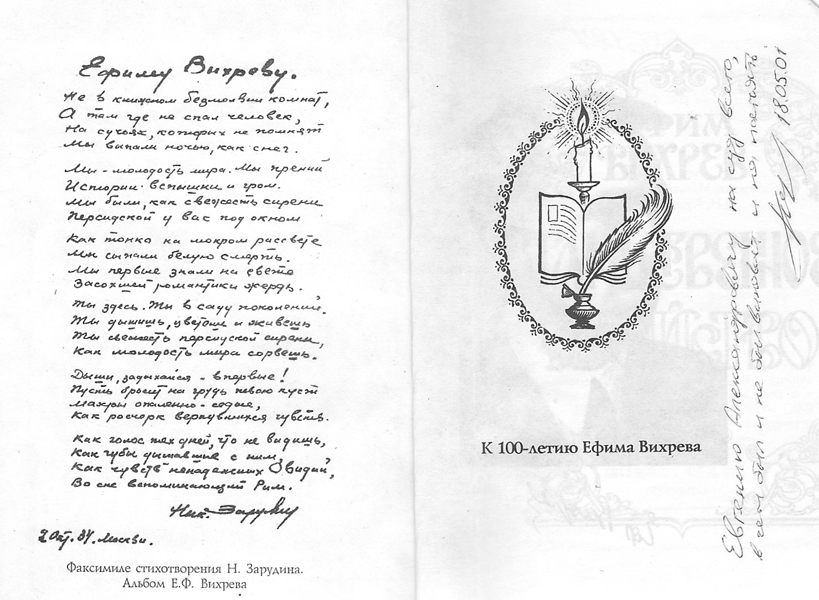 Ефиму Вихреву.
Не в книжном безмолвии комнат,
А там где не спал человек,
На сучьях, которых не помнят
Мы выпали ночью, как снег.
Мы - молодость мира. Мы прений
Истории вспышки и гром.
Мы были, как свежесть сирени
Персидской у вас под окном
Как тонко на мокром рассвете
Мы сыпали белую смерть.
Мы первые знали на свете
Засохшей романтики жердь.
Ты здесь. Ты в саду поколений.
Ты дышишь, цветешь и живешь
Ты свежесть персидской сирени,
Как молодость мира сорвешь.
Дыши, задыхайся - впервые!
Пусть бросит на грудь певою куст
Махры опаленно-седые,
Как росчерк вернувшихся чувств.
Как голос тех дней, что не видишь,
Как губы дышавшие с ним,
Как чувств ненадежных Овидий,
Во сне вспоминающий Рим.
Ник. Зарудин
2 Окт. 34. Москва.
Факсимиле стихотворения Н. Зарудина.
Альбом Е.Ф. Вихрева
К 100-летию Ефима Вихрева
Евгению Александровичу на суд всего,
в чем был и не был виноват и на память
18.05.01